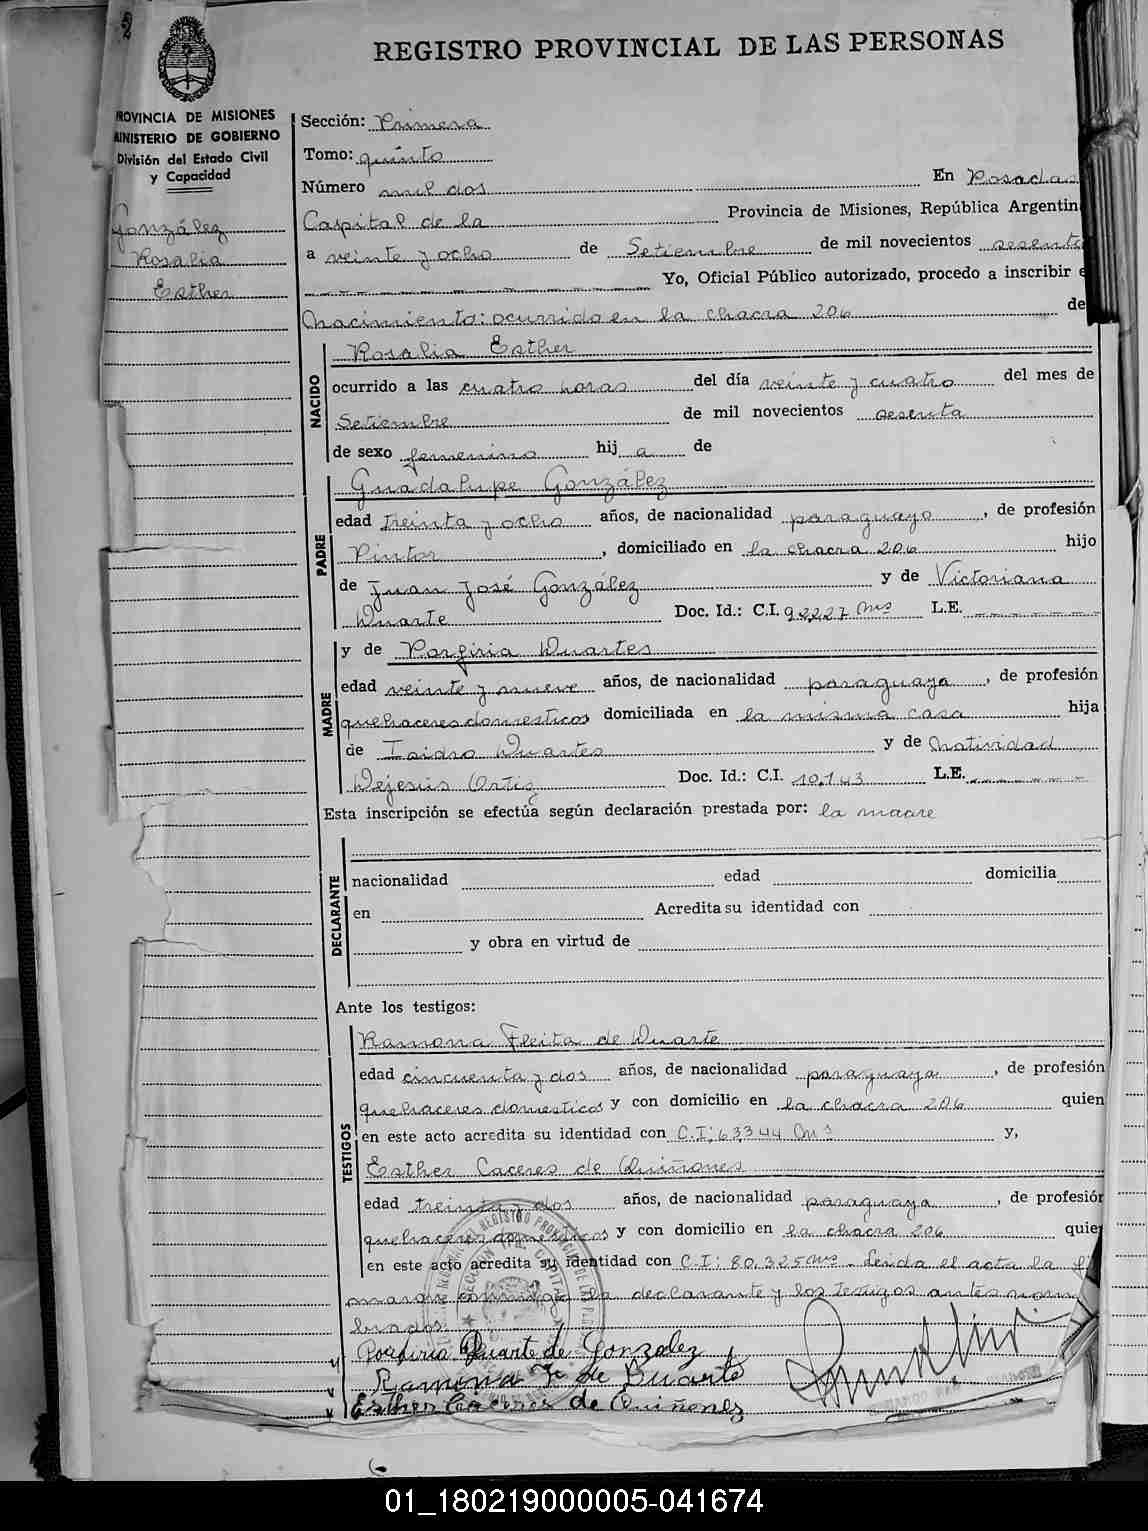 REGISTRO PROVINCIAL DE LAS PERSONAS
PROVINCIA DE MISIONES
MINISTERIO DE GOBIERNO
División del Estado Civil
y Capacidad
González
Rosalia
Esther
Sección: Primera
Tomo: quinto
Número mil dos En Posadas
Capital de la Provincia de Misiones, República Argentin
a veinte y ocho de Setiembre de mil novecientos sesenta
Yo, Oficial Público autorizado, procedo a inscribir e
Nacimiento: ocurrido en la chacra 206 de
NACIDO
Rosalia Esther
ocurrido a las cuatro horas del día veinte y cuatro del mes de
Setiembre de mil novecientos sesenta
de sexo femenino hij a de
PADRE
Guadalupe González
edad treinta y ocho años, de nacionalidad paraguayo, de profesión
Pintor, domiciliado en la chacra 206 hijo
de Juan José González y de Victoriana
Duarte Doc. Id.: C.I. 92,227 Mns L.E.
MADRE
y de Porfiria Duartes
edad veinte y nueve años, de nacionalidad paraguaya, de profesión
quehaceres domesticos domiciliada en la misma casa hija
de Isidro Duartes y de Natividad
Dejesús Ortiz Doc. Id.: C.I. 19.143 L.E.
Esta inscripción se efectúa según declaración prestada por: la madre
DECLARANTE
nacionalidad edad domicilia
en Acredita su identidad con
y obra en virtud de
Ante los testigos:
TESTIGOS
Ramona Fleita de Duarte
edad cincuenta y dos años, de nacionalidad paraguaya, de profesión
quehaceres domesticos y con domicilio en la chacra 206 quien
en este acto acredita su identidad con C.I: 63344 Mns y,
Esther Caceres de Quiñones
edad treinta y dos años, de nacionalidad paraguaya, de profesión
quehaceres domesticos y con domicilio en la chacra 206 quie
en este acto acredita su identidad con C.I: 80,325 Mns. Leida el acta la fi
man conmigo la declarante y los testigos antes nom
brados.
Porfiria Duarte de Gonzalez
Ramona F. de Duarte
Esther Caceres de Quiñonez
01_180219000005-041674